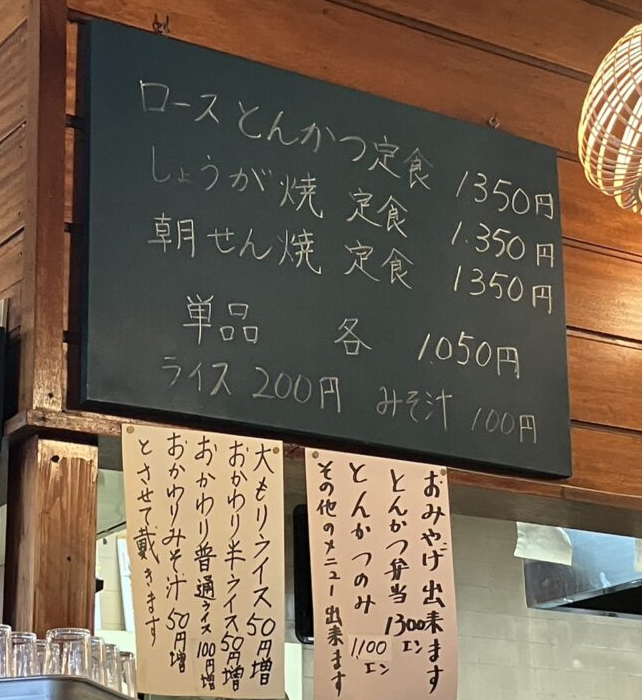 ロースとんかつ定食 1350円
しょうが焼 定食 1.350円
朝せん焼 定食 1350円
単品 各 1.050円
ライス 200円 みそ汁 100円
大もりライス50円増
おかわり半ライス50円増
おかわり普通ライス100円増
おかわりみそ汁50円増
とさせて戴きます
おみやげ出来ます
とんかつ弁当1300エン
とんかつのみ1100エン
その他のメニュー出来ます